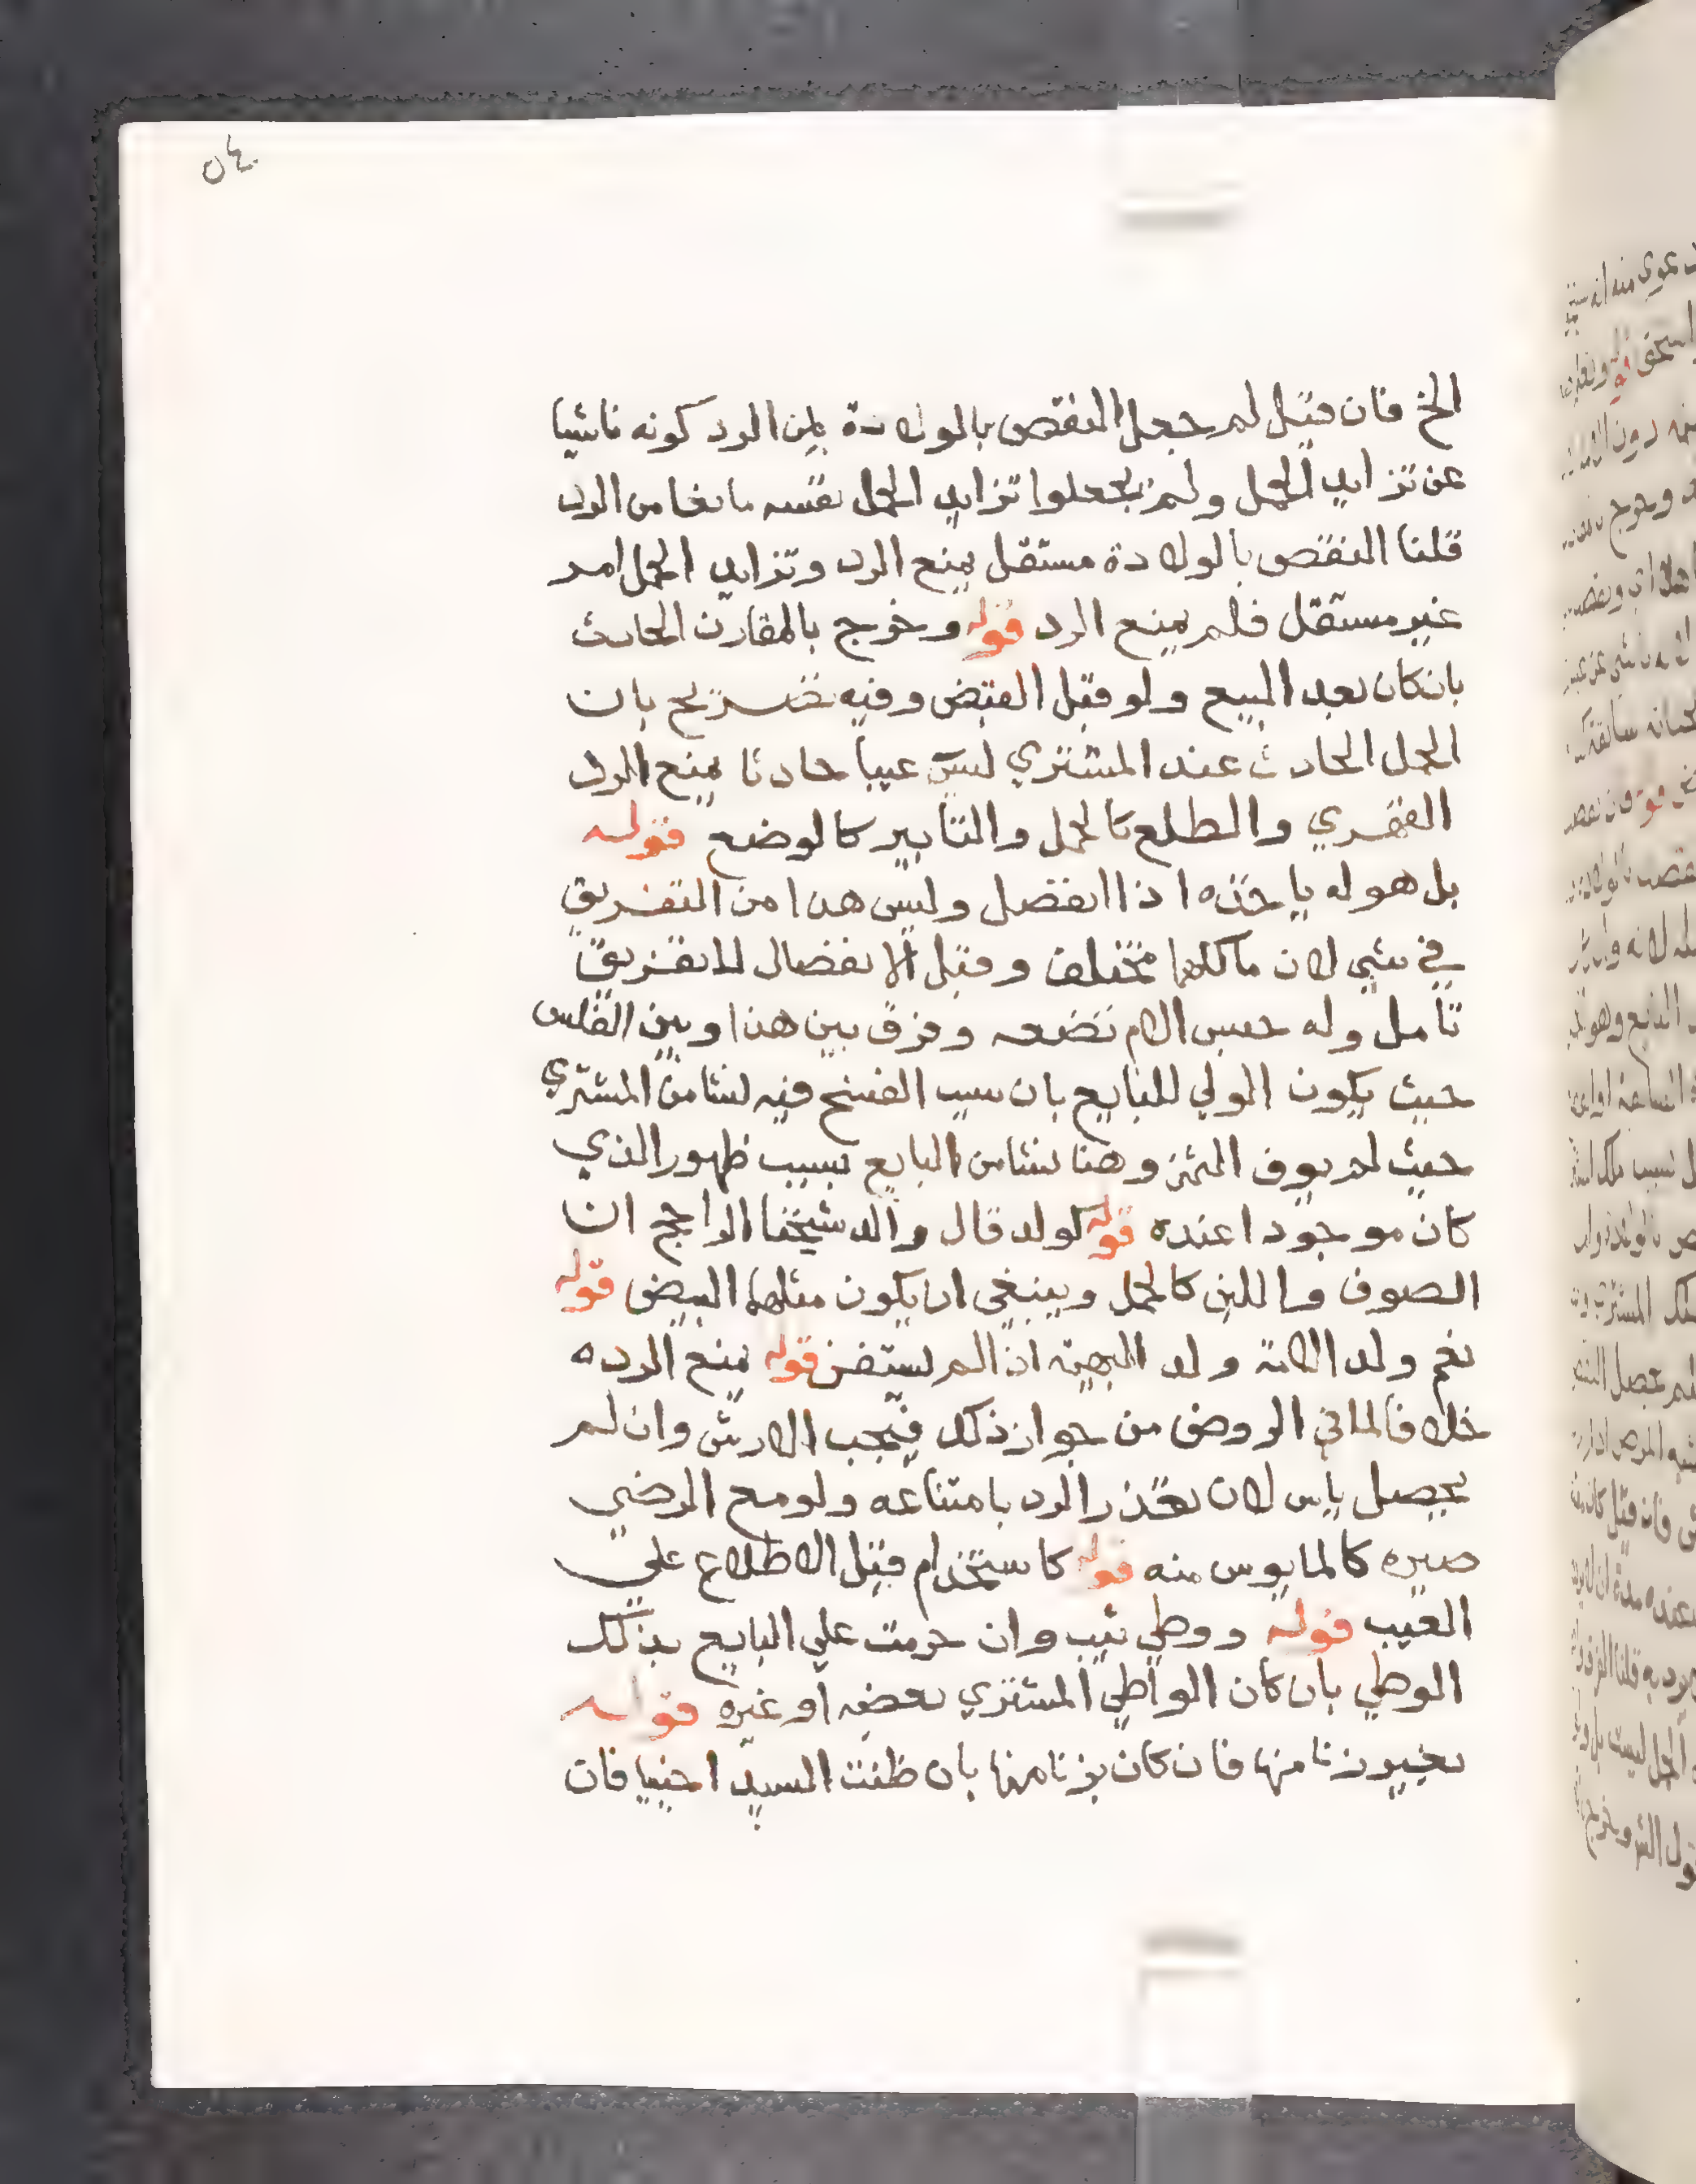 ٥٤
الخ فان قيل لم جعل النقص بالولادة يمن الرد كونه ناشيا
عن تزايد الحمل ولم يجعلوا تزايد الحمل نفسه مانعا من الرد
قلنا النقص بالولادة مستقل يمنع الرد وتزايد الحمل امر
غير مستقل فلم يمنع الرد قوله وخرج بالمقارن الحادث
بان كان بعد المبيع ولو قبل القبض وفيه تصريح بان
الحمل الحادث عند المشتري ليس عيبا حادثا يمنع الرد
القهري والطلع كالحمل والتابير كالوضع قوله
بل هو له ياخذه اذا انفصل وليس هذا من التفريق
في شي لان مالكهما مختلف وقبل الانفصال لا تفريق
تامل وله حبس الام تضعه وفرق بين هذا وبين الفلس
حيث يكون المولي للبايع بان سبب الفسخ فيه نشا من المشتري
حيث لم يوف الثمن وهنا نشا من البايع بسبب ظهور الذي
كان موجودا عنده قوله كولد قال والد شيخنا الراجح ان
الصوف واللبن كالحمل وينبغي ان يكون مثلهما البيض قوله
نعم ولد الامة ولد البهيمة اذا لم يستغن قوله يمنع الرد ه
خلافا لما في الروض من جواز ذلك فيجب الارش وان لم
يحصل ياس لان تعذر الرد بامتناعه ولو مع الرضي
صيره كالمايوس منه قوله كاستخدام قبل الاطلاع علي
العيب قوله ووطي ثيب وان حرمت علي البايع بذلك
الوطي بان كان الواطي المشتري بعضه او غيره قوله
بغير زنا منها فان كان بزنا منها بان ظنت السيد اجنبيا فان